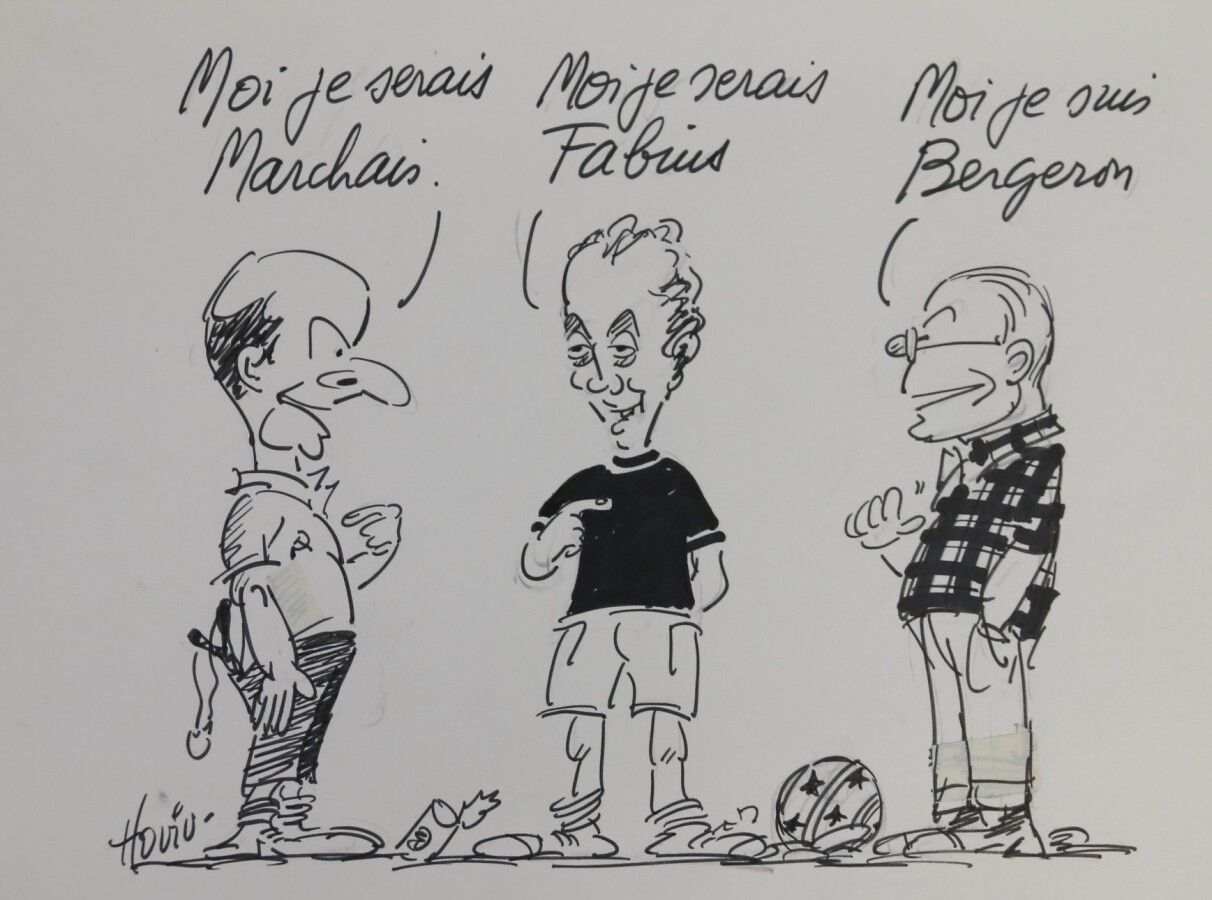 Moi je serais
Marchais.
Moi je serais
Fabius
Moi je suis
Bergeron
Hoviv